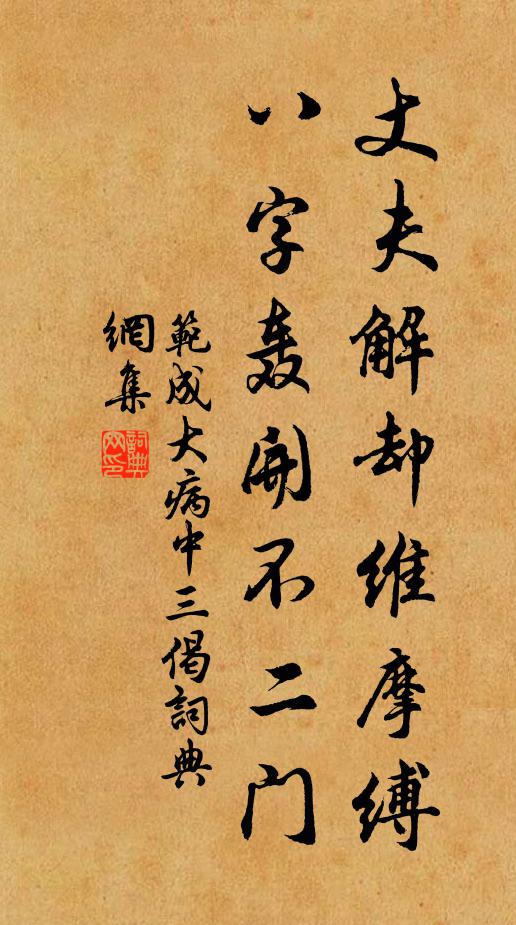 丈夫解却维摩缚
八字轰開不二门
範成大病中三偈詞典
網集
詞典网印